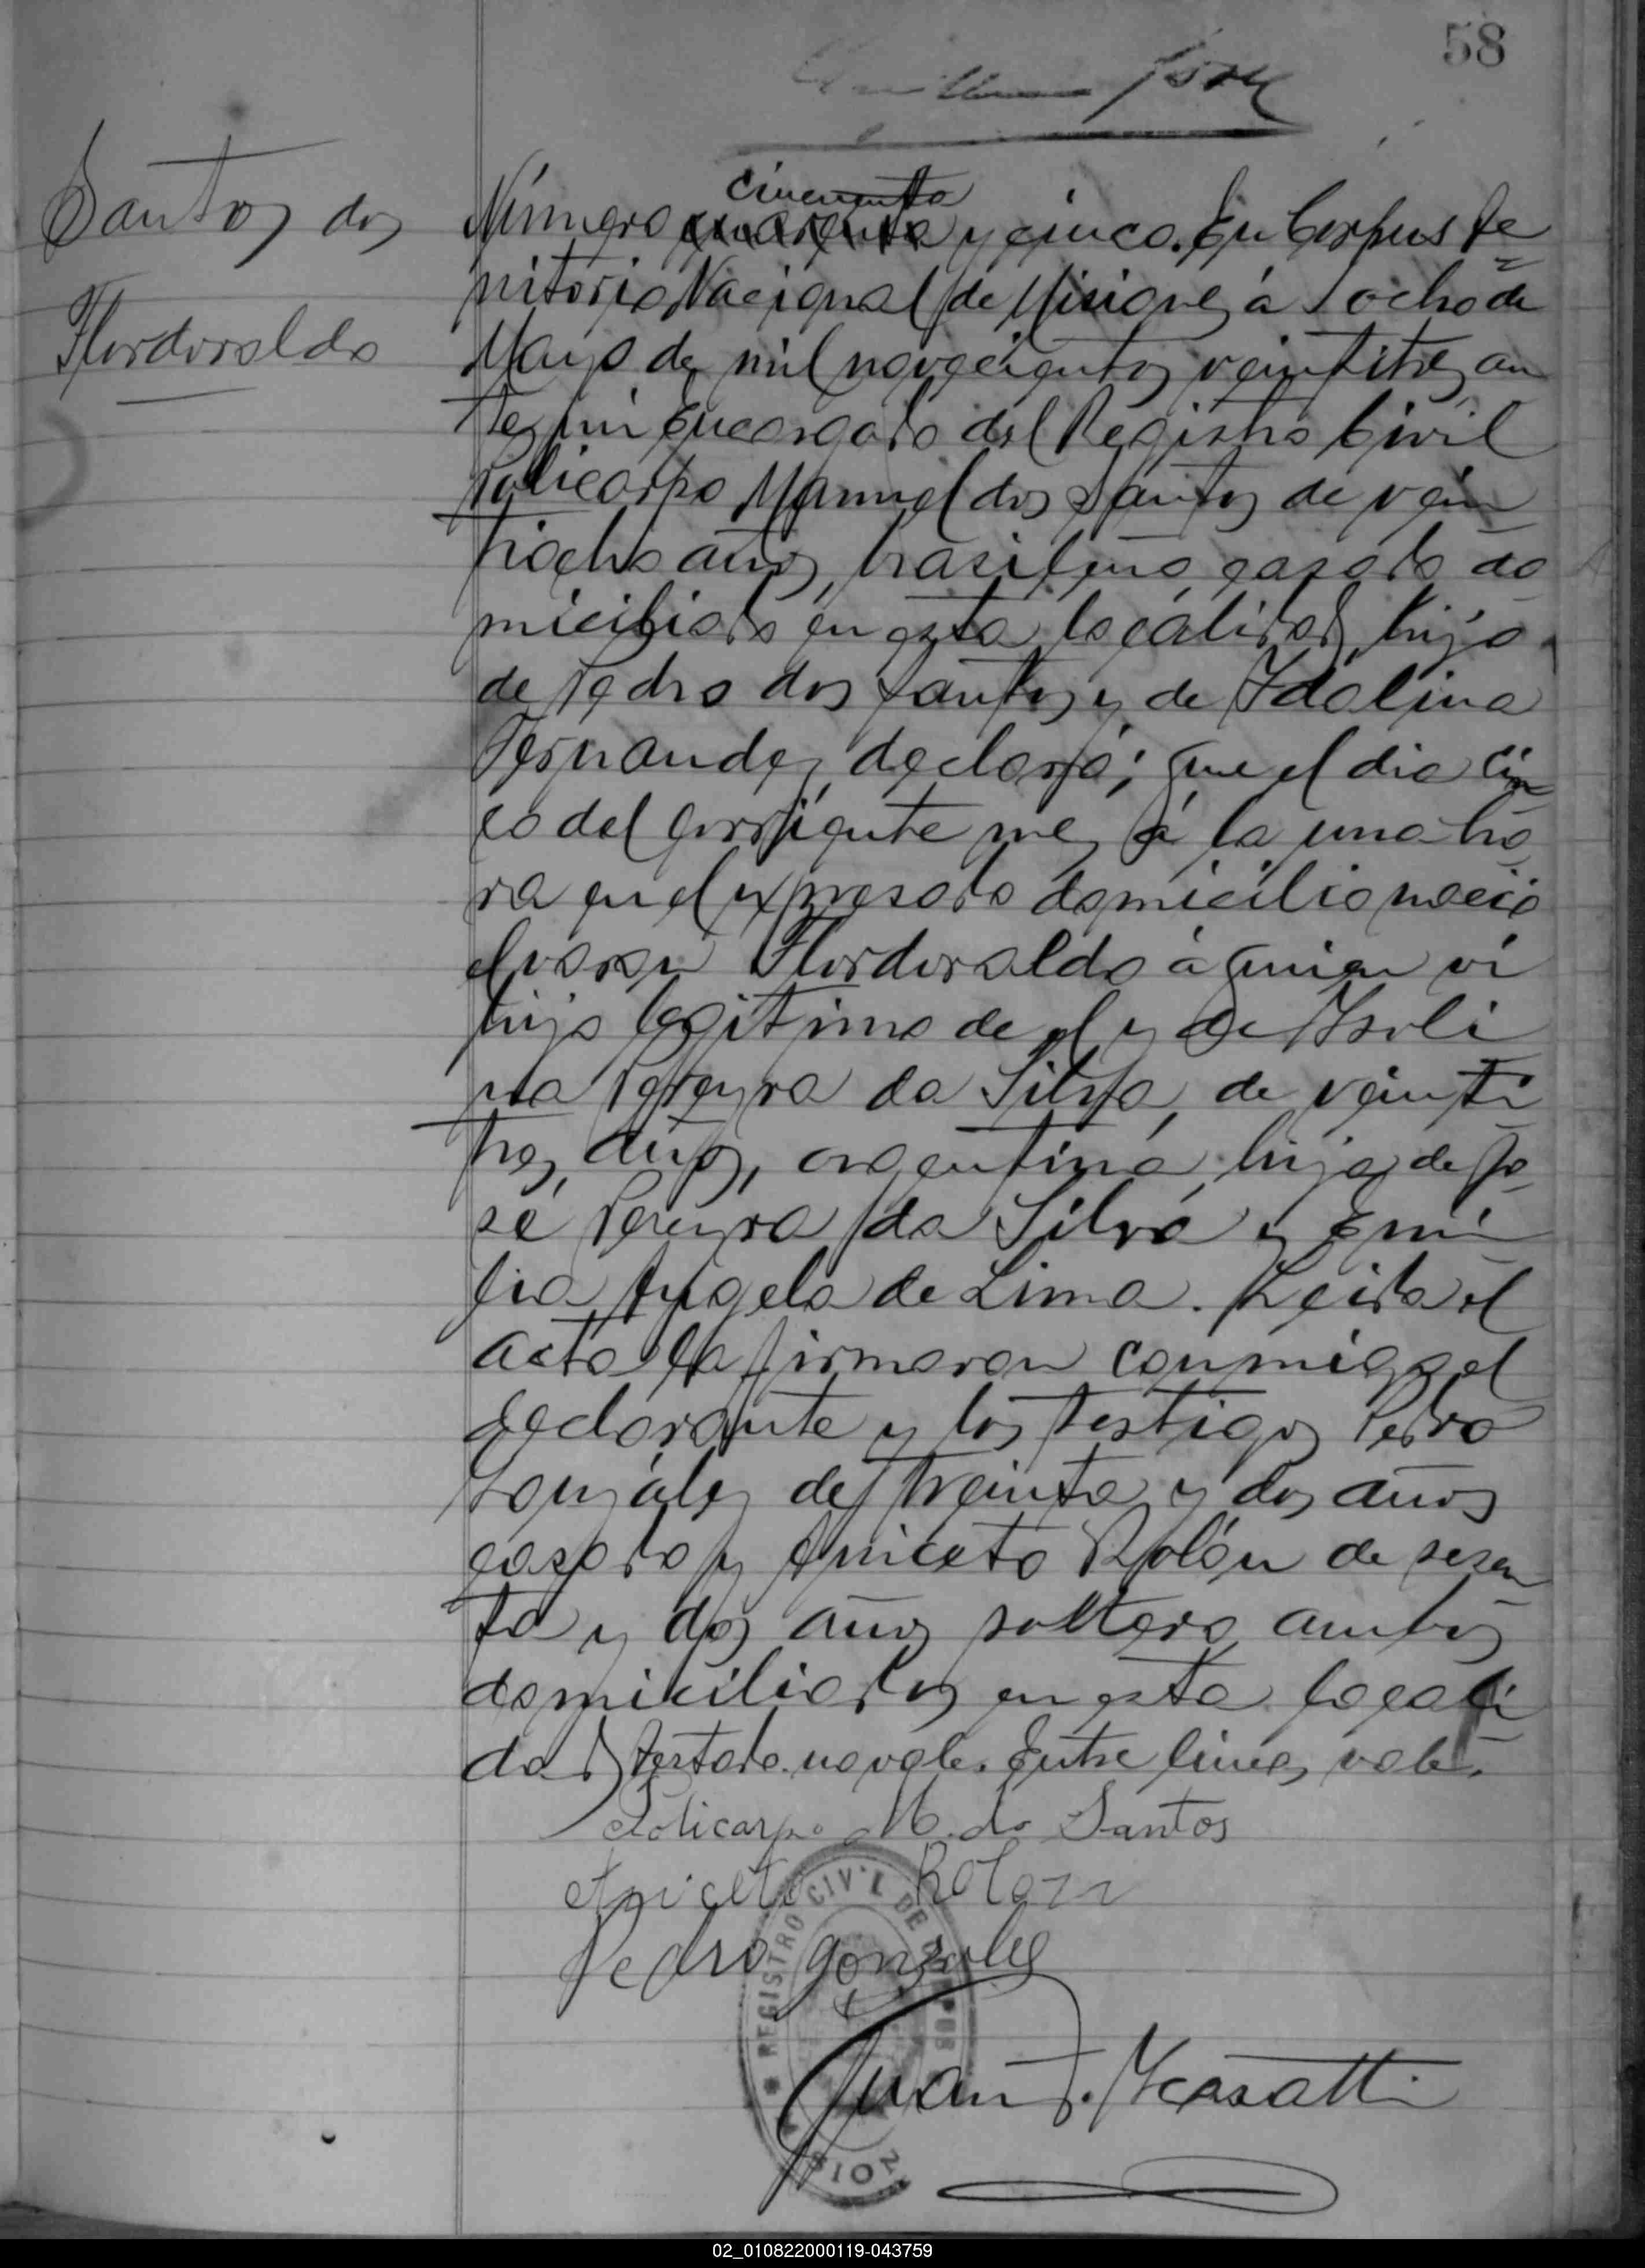 58
Santos dos
Flordoraldo
cincuenta
Número cuarenta y cinco. En Corpus Te
rritorio Nacional de Misiones á ocho de
Mayo de mil novecientos veintitres, an
te mi Encargado del Registro Civil
Policarpo Manuel dos Santos de vein
tiocho años, brasileño, casado do
miciliado en esta localidad, hijo
de Pedro dos Santos y de Idalina
Fernandez, declaró; que el dia cin
co del corriente mes á la una ho
ra en el expresado domicilio nació
el varon Flordoraldo á quien vi
hijo legitimo de el y de Isoli
na Pereyra da Silva, de veinti
tres años, argentina, hija de Jo
sé Pereyra da Silva y Emi
lia Angela de Lima. Leida el
acta la firmaron conmigo el
declarante y los testigos Pedro
González de treinta y dos años
casado y Aniceto Rolón de sesen
ta y dos años soltero, ambos
domiciliados en esta locali
dad. Testado no vale. Entre lineas vale.
Policarpo M. do Santos
Aniceto Rolon
Pedro Gonzales
Juan
REGISTRO CIVIL DE
02_010822000119-043759